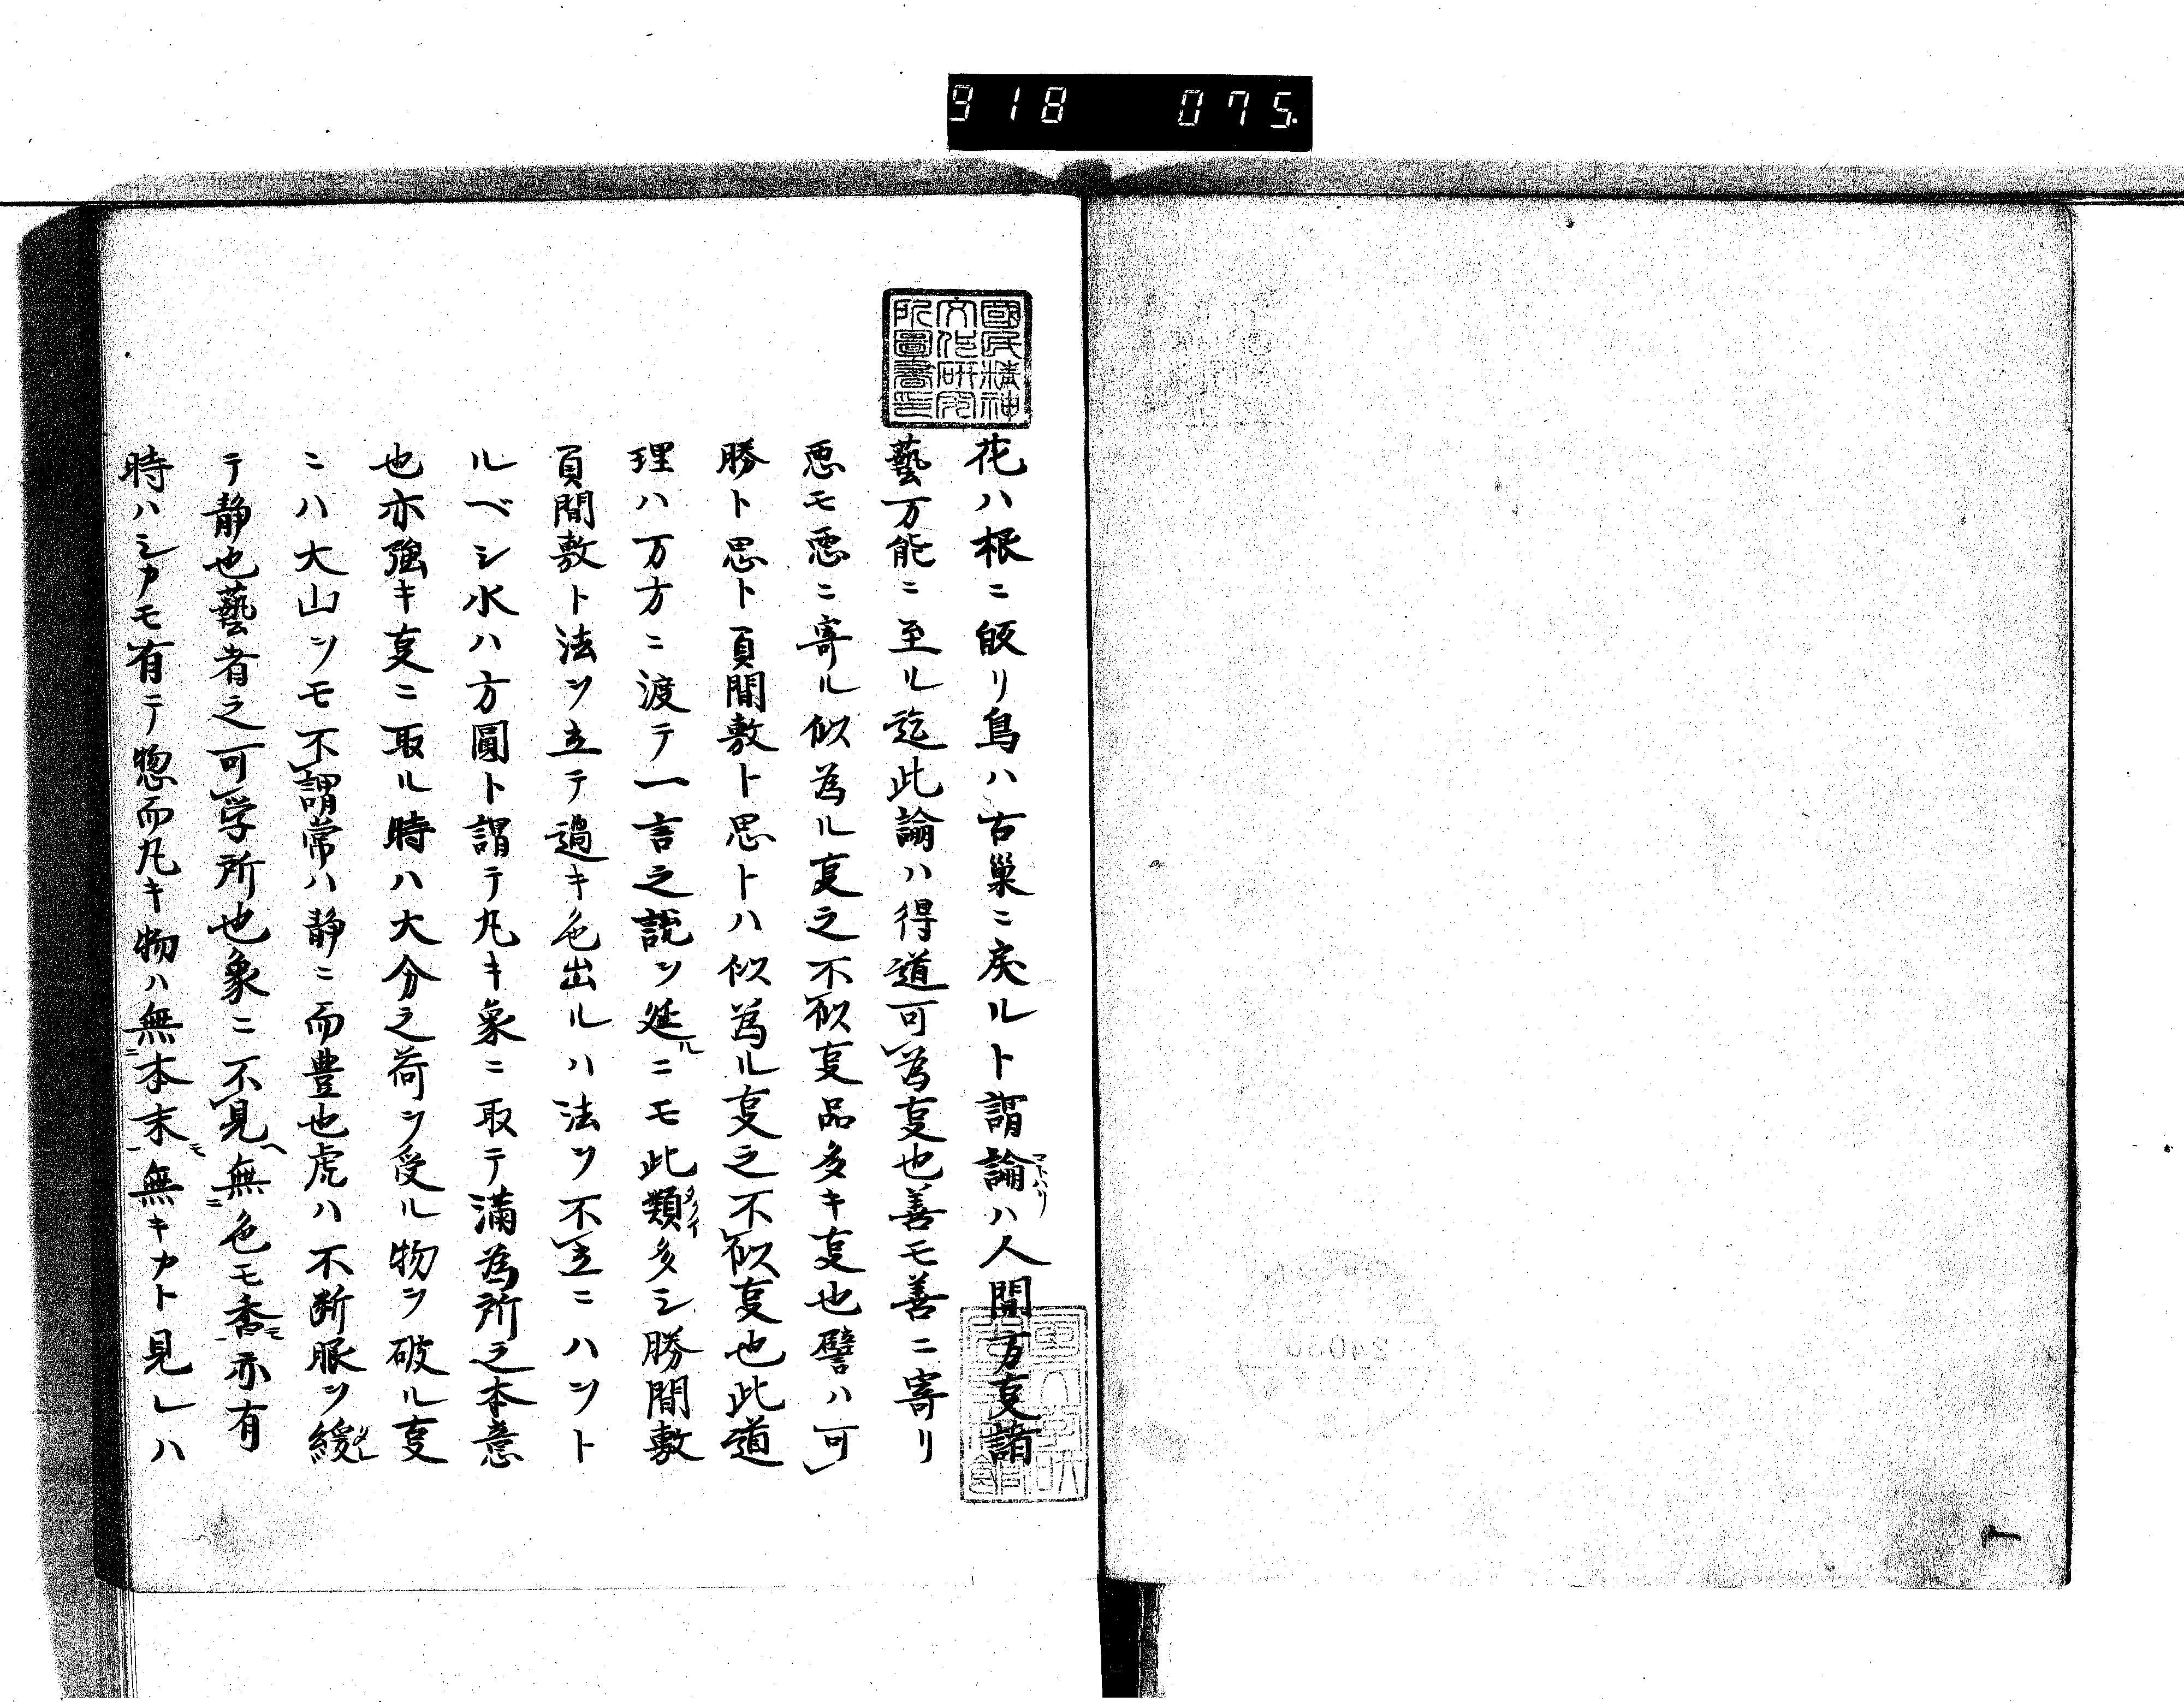 918 075.
國民精神
文化研究
所圖書印
花ハ根ニ皈リ鳥ハ古巣ニ戻ルト謂論マトハリハ人間万叓諸
藝万能ニ至ル迄此論ハ得道可為叓也善モ善ニ寄リ
悪モ悪ニ寄ル似為ル叓之不似叓品多キ叓也譬ハ可
勝ト思ト負間敷ト思トハ似為ル叓之不似叓也此道
理ハ万方ニ渡テ一言之説ヲ延ルニモ此類タクイ多シ勝間敷
負間敷ト法ヲ立テ過キ色出ルハ法ヲ不立ニハヲト
ルベシ水ハ方圓ト謂テ丸キ象ニ取テ満為所之本意
也亦強キ叓ニ取ル時ハ大分之荷ヲ受ル物ヲ破ル叓
ニハ大山ヲモ不謂常ハ静ニ而豊也虎ハ不断眼ヲ緩メ
テ静也藝者之可学所也象ニ不見ヘ無ニ色モ香モ亦有
時ハシカモ有テ惣而丸キ物ハ無ニ本末モ無キカト見レハ